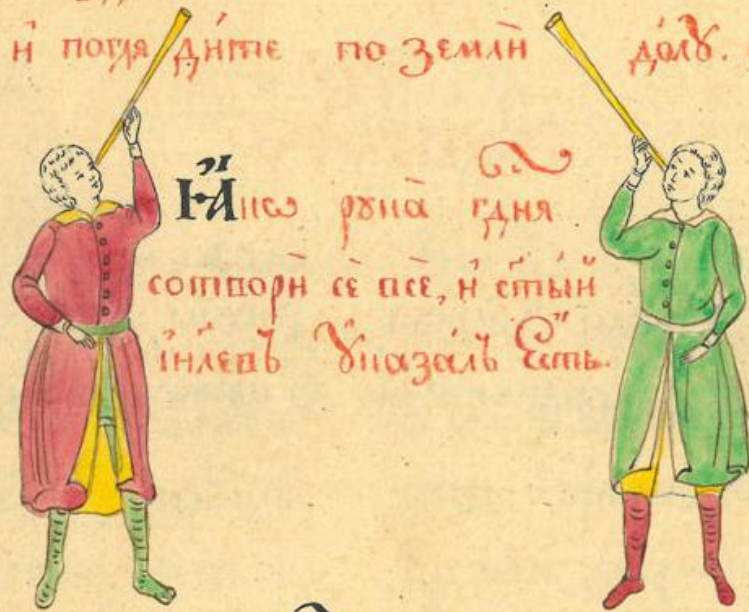 и҆ погля ди́те по земли̇̀ до́лꙋ.
Ꙗ҆́кѡ рꙋка̀ гдня
сотвори̇̀ сѐ всѐ, и҆ ст҃ый
і҆и҃левъ ᲂу҆каза́лъ Є҆́сть.